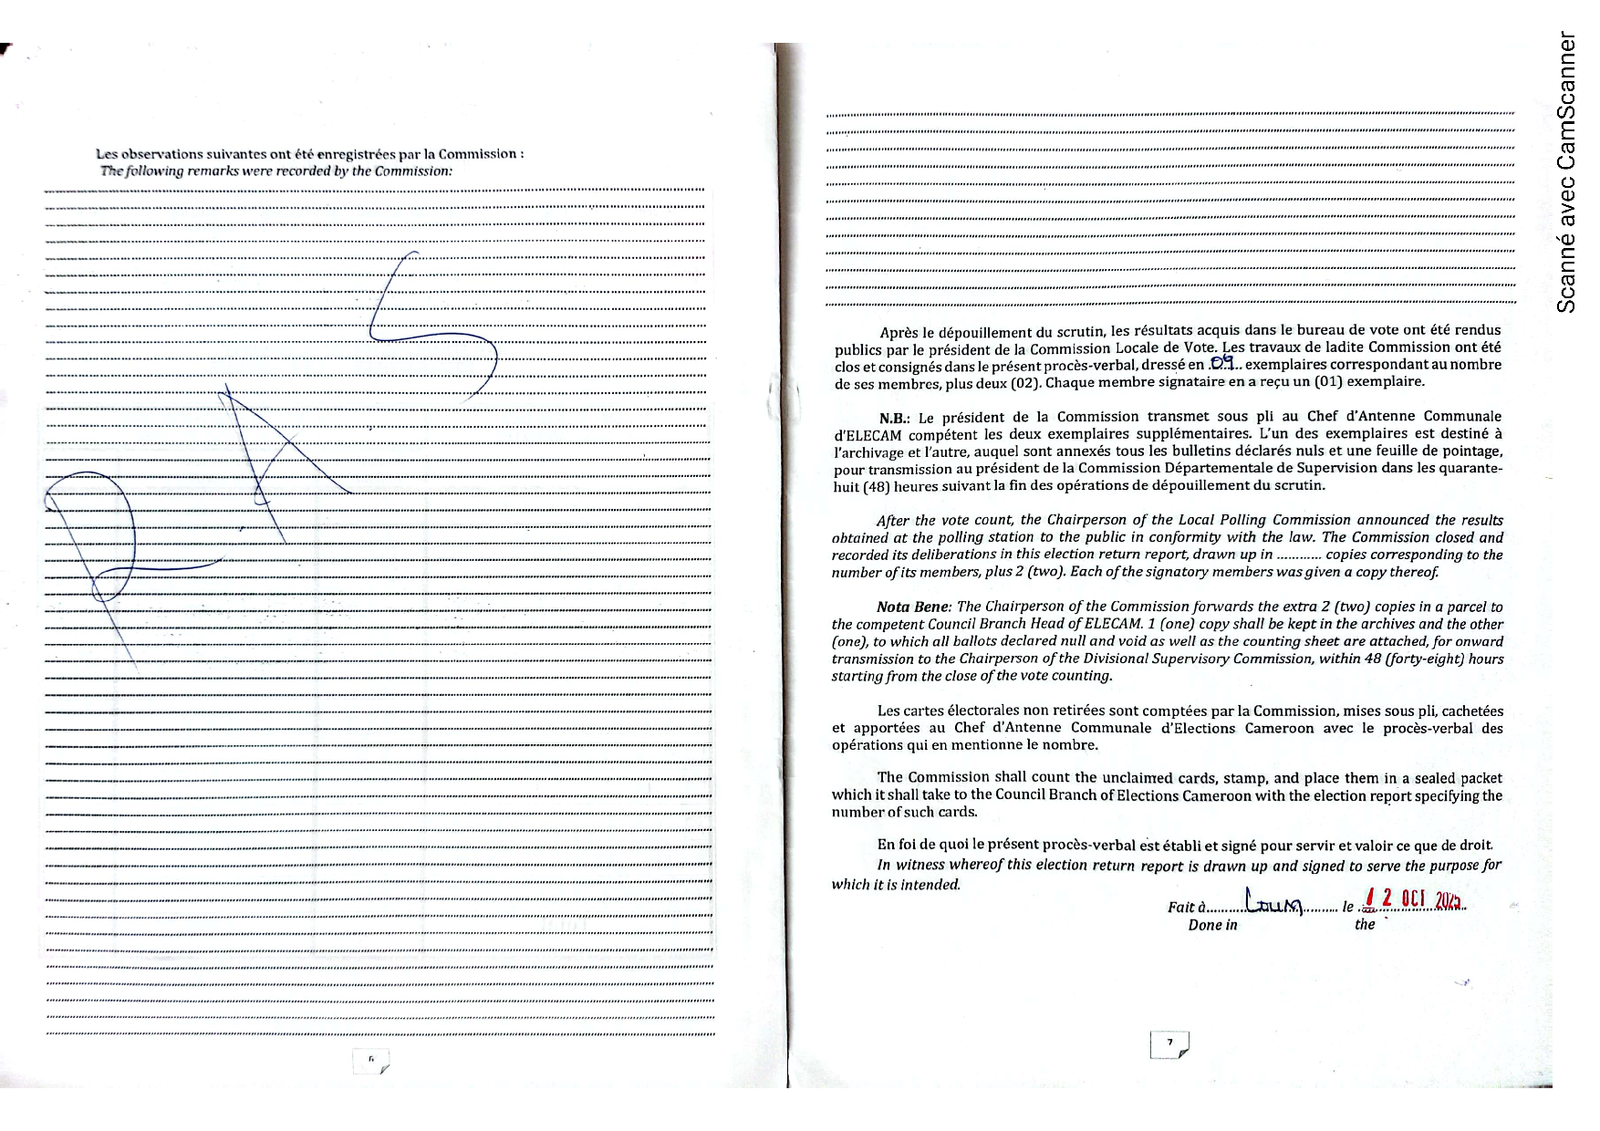 Les observations suivantes ont été enregistrées par la Commission :
The following remarks were recorded by the Commission:
RAS
6
Après le dépouillement du scrutin, les résultats acquis dans le bureau de vote ont été rendus
publics par le président de la Commission Locale de Vote. Les travaux de ladite Commission ont été
clos et consignés dans le présent procès-verbal, dressé en .09.. exemplaires correspondant au nombre
de ses membres, plus deux (02). Chaque membre signataire en a reçu un (01) exemplaire.
N.B.: Le président de la Commission transmet sous pli au Chef d'Antenne Communale
d'ELECAM compétent les deux exemplaires supplémentaires. L'un des exemplaires est destiné à
l'archivage et l'autre, auquel sont annexés tous les bulletins déclarés nuls et une feuille de pointage,
pour transmission au président de la Commission Départementale de Supervision dans les quarante-
huit (48) heures suivant la fin des opérations de dépouillement du scrutin.
After the vote count, the Chairperson of the Local Polling Commission announced the results
obtained at the polling station to the public in conformity with the law. The Commission closed and
recorded its deliberations in this election return report, drawn up in ........... copies corresponding to the
number of its members, plus 2 (two). Each of the signatory members was given a copy thereof.
Nota Bene: The Chairperson of the Commission forwards the extra 2 (two) copies in a parcel to
the competent Council Branch Head of ELECAM. 1 (one) copy shall be kept in the archives and the other
(one), to which all ballots declared null and void as well as the counting sheet are attached, for onward
transmission to the Chairperson of the Divisional Supervisory Commission, within 48 (forty-eight) hours
starting from the close of the vote counting.
Les cartes électorales non retirées sont comptées par la Commission, mises sous pli, cachetées
et apportées au Chef d'Antenne Communale d'Elections Cameroon avec le procès-verbal des
opérations qui en mentionne le nombre.
The Commission shall count the unclaimed cards, stamp, and place them in a sealed packet
which it shall take to the Council Branch of Elections Cameroon with the election report specifying the
number of such cards.
En foi de quoi le présent procès-verbal est établi et signé pour servir et valoir ce que de droit.
In witness whereof this election return report is drawn up and signed to serve the purpose for
which it is intended.
Fait à.......... Loum ......... le .12 OCT 2025.
Done in the
7
Scanné avec CamScanner